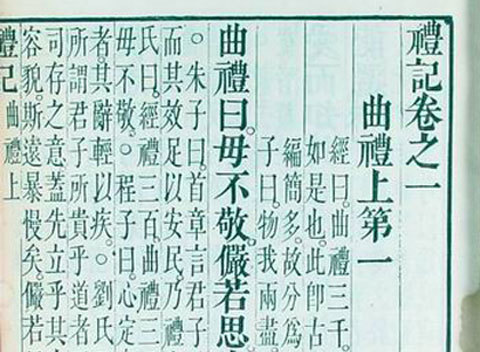 禮記卷之一
曲禮上第一
經曰。曲禮三千。
如是也。此卽古
編簡多。故分爲
子曰。物我兩盡。
曲禮曰。毋不敬。儼若思。
○朱子曰。首章言君子
而其效足以安民。乃禮
氏曰。經禮三百。曲禮三
毋不敬。○程子曰。心定
者。其辭輕以疾。○劉氏
所謂君子所貴乎道者
司存之意。蓋先立乎其
容貌。斯遠暴慢矣。儼若
禮記 曲禮上